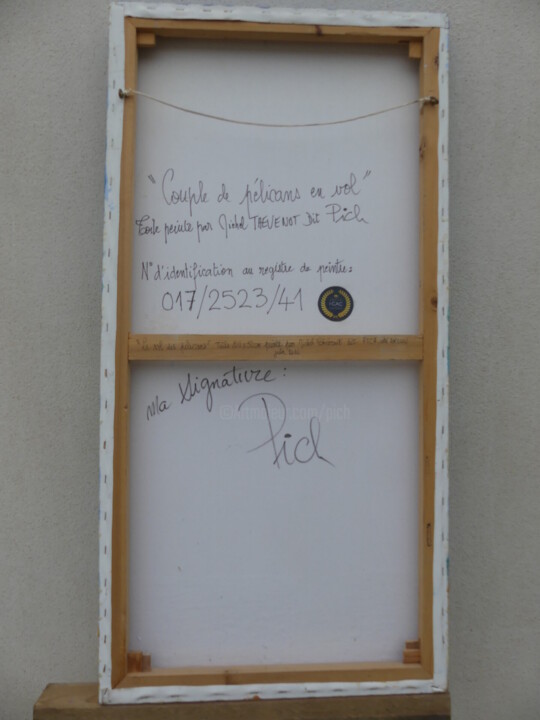 "Couple de pélicans en vol"
Toile peinte par Michel THEVENOT Dit Pich
N° d'identification au registre de peintres
017/2523/41
Ma Signature :
@artmajeur.com/pich
Pich